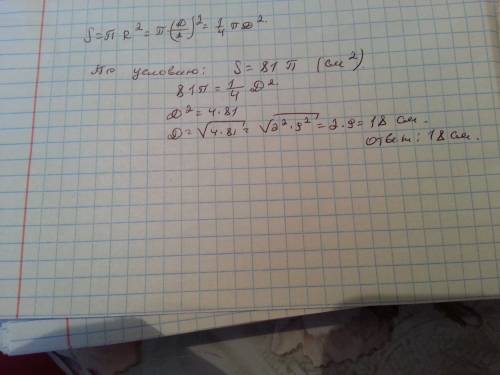 S=π·R²=π(D/2)²=1/4 πD²
По условию: S=81π (см²)
81π=1/4 D²
D²=4·81
D=√4·81=√2²·9²=2·9=18 см.
ответ: 18 см.